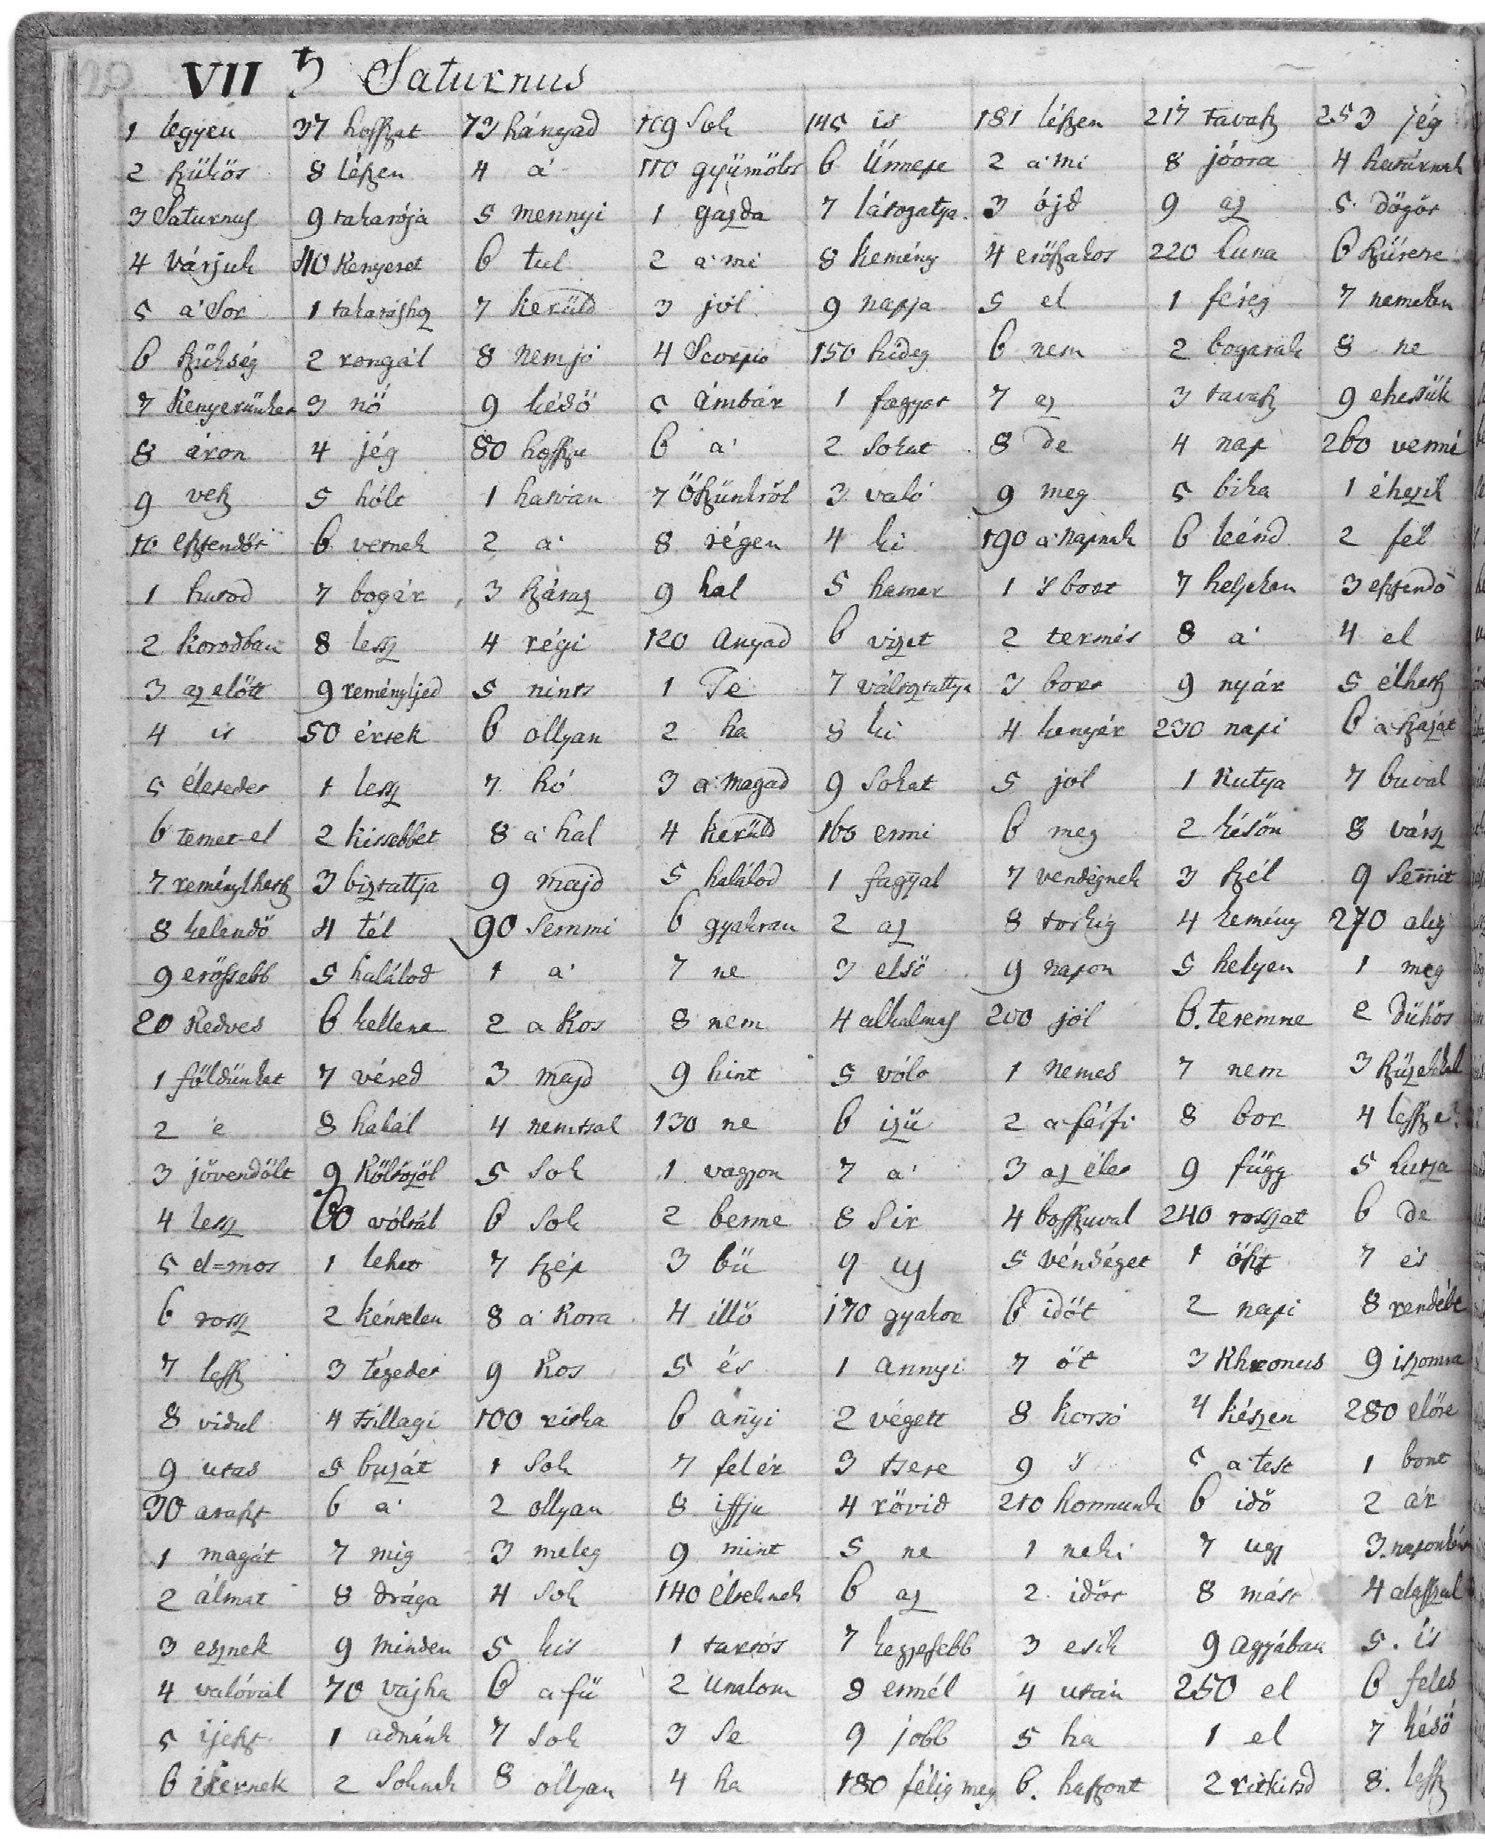 VII ♄ Saturnus
1 legyen 37 hosszat 73 hányad 109 Sok 145 is 181 lészen 217 tavasz 253 jég
2 szükös 8 lészen 4 a' 110 gyümölts 6 Ünnepe 2 a' mi 8 jóora 4 határnak
3 Saturnus 9 takarója 5 mennyi 1 gazda 7 látogatja 3 ójd 9 az 5 dögös
4 várjuk 40 Kenyeret 6 tul 2 a' mi 8 kemény 4 erőszakos 220 Luna 6 szürete
5 a' Sor 1 takaráshoz 7 kerüld 3 jól 9 napja 5 el 1 féreg 7 nemetken
6 szükség 2 rongál 8 nem jó 4 Scorpió 150 hideg 6 nem 2 bogarak 8 ne
7 Kenyerünket 3 nő 9 késő 5 ámbár 1 fagyot 7 az 3 tavasz 9 ehessük
8 áron 4 jég 80 hosszu 6 a' 2 Sokat 8 de 4 nap 260 venni
9 vesz 5 hólt 1 hatvan 7 őszünkről 3 való 9 meg 5 bika 1 éhezik
10 esztendőt 6 vernek 2 a' 8 régen 4 ki 190 a' napnak 6 leénd 2 fél
1 hutod 7 bogár 3 száraz 9 hal 5 hamar 1 's bort 7 helyken 3 esztendő
2 korodban 8 lessz 4 régi 120 Anyád 6 vizet 2 termés 8 a' 4 el
3 az előtt 9 reményljed 5 nints 1 Te 7 változtattya 3 bora 9 nyár 5 élhetsz
4 is 50 érsek 6 ollyan 2 ha 8 ki 4 kenyér 230 napi 6 a' száját
5 életedet 1 lessz 7 hó 3 a' magad 9 Sokat 5 jól 1 Kutya 7 buval
6 temet el 2 kissebbet 8 a' hal 4 kerüld 160 enni 6 meg 2 későn 8 vársz
7 reménylhetsz 3 biztattja 9 majd 5 halálod 1 faggyal 7 vendégnek 3 szél 9 Semit
8 kelendő 4 tél 90 Semmi 6 gyakran 2 az 8 torkig 4 kemény 270 alig
9 erőssebb 5 halálod 1 a' 7 ne 3 első 9 napon 5 helyen 1 meg
20 Kedves 6 kellene 2 a Kos 8 nem 4 alkalmas 200 jól 6 teremne 2 dühös
1 földünket 7 véred 3 majd 9 hint 5 vólt 1 nemes 7 nem 3
2 é 8 halál 4 nemtsak 130 ne 6 izü 2 a' férfi 8 bor 4 lessz é?
3 jövendölt 9 Költsöjöl 5 Sok 1 vagyon 7 a' 3 az élet 9 függ 5 kutya
4 lessz 60 vóltál 6 Sok 2 benne 8 Sir 4 bosszuval 240 rosszat 6 de
5 el=mos 1 lehet 7 szép 3 bü 9 uj 5 vénséget 1 ősz 7 és
6 rossz 2 kéntelen 8 a' Kora 4 illő 170 gyakor 6 időt 2 napi 8
7 lessz 3 tégedet 9 Kos 5 és 1 annyi 7 őt 3 Khronus 9 iszomra
8 vidul 4 tsillagi 100 ritka 6 anyi 2 végett 8 Korsó 4 készen 280 előre
9 utad 5 buzát 1 Sok 7 felér 3 tsere 9 's 5 a' test 1 bont
30 araszt 6 a' 2 ollyan 8 iffju 4 rövid 210 honnunk 6 idő 2 ár
1 magát 7 mig 3 meleg 9 mint 5 ne 1 neki 7 ugy 3
2 álmat 8 drága 4 Sok 140 élteknek 6 az 2 időt 8 mást 4
3 esznek 9 minden 5 kis 1 tartós 7 hegyesebb 3 esik 9 agyában 5 is
4 valóval 70 vajha 6 a fü 2 unalom 8 ennél 4 után 250 el 6 feled
5 ijeszt 1 adnánk 7 Sok 3 Se 9 jobb 5 ha 1 el 7 késő
6 ikernek 2 Soknak 8 ollyan 4 ha 180 félig meg 6 haszont 2 ritkitsd 8 lessz